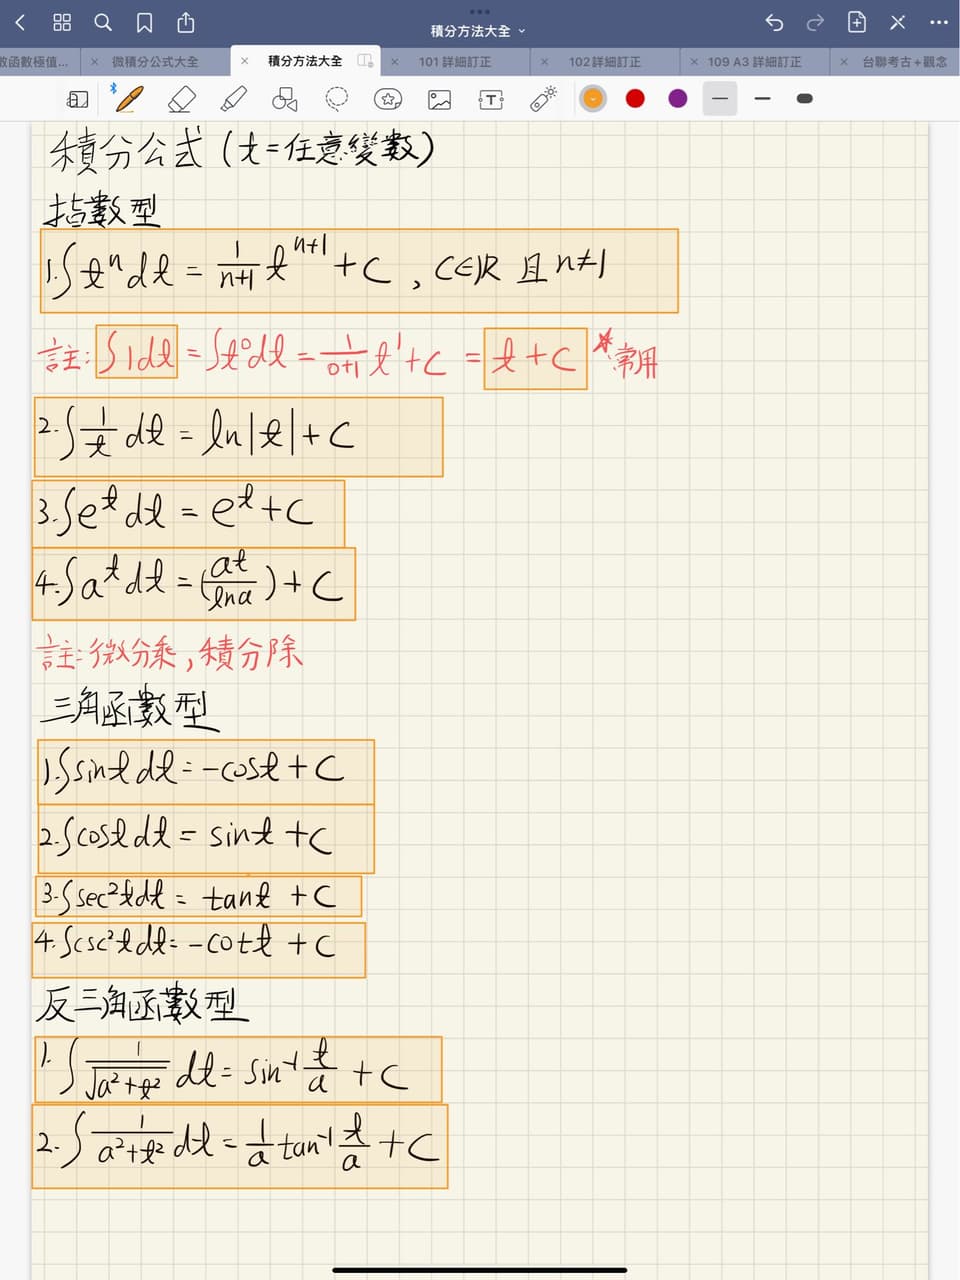 積分方法大全
數函數極值... × 微積分公式大全 × 積分方法大全 × 101 詳細訂正 × 102詳細訂正 × 109 A3 詳細訂正 × 台聯考古+觀念
積分公式 (t=任意變數)
指數型
1.∫tⁿdt = 1/(n+1) tⁿ⁺¹ + C , C∈R 且 n≠1
註: ∫1dt = ∫t⁰dt = 1/(0+1) t¹ + C = t + C *常用
2.∫1/t dt = ln|t| + C
3.∫eᵗdt = eᵗ + C
4.∫aᵗdt = (at/lna) + C
註:微分乘,積分除
三角函數型
1.∫sint dt = -cost + C
2.∫cost dt = sint + C
3.∫sec²tdt = tant + C
4.∫csc²tdt = -cott + C
反三角函數型
1.∫1/√(a²+t²) dt = sin⁻¹ t/a + C
2.∫1/(a²+t²) dt = 1/a tan⁻¹ t/a + C